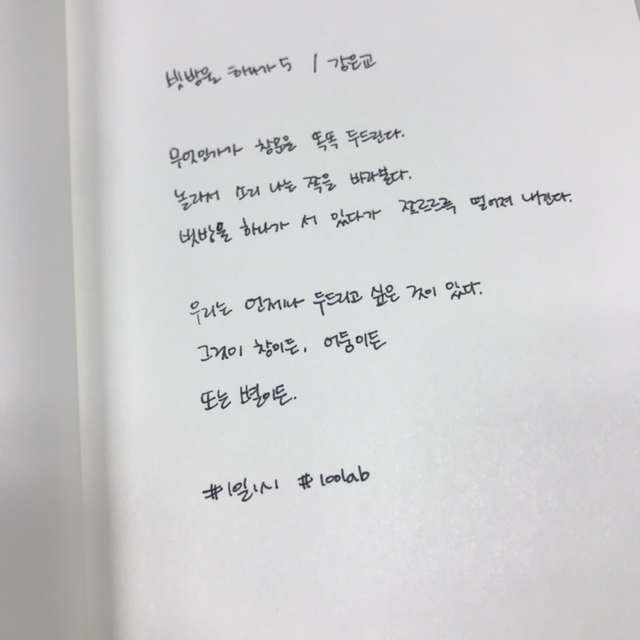 빗방울 하나가 5 / 강은교
무엇인가가 창문을 똑똑 두드린다.
놀라서 소리 나는 쪽을 바라본다.
빗방울 하나가 서 있다가 쪼르르륵 떨어져 내린다.
우리는 언제나 두드리고 싶은 것이 있다.
그것이 창이든, 어둠이든
또는 별이든.
#1일1시 #100lab